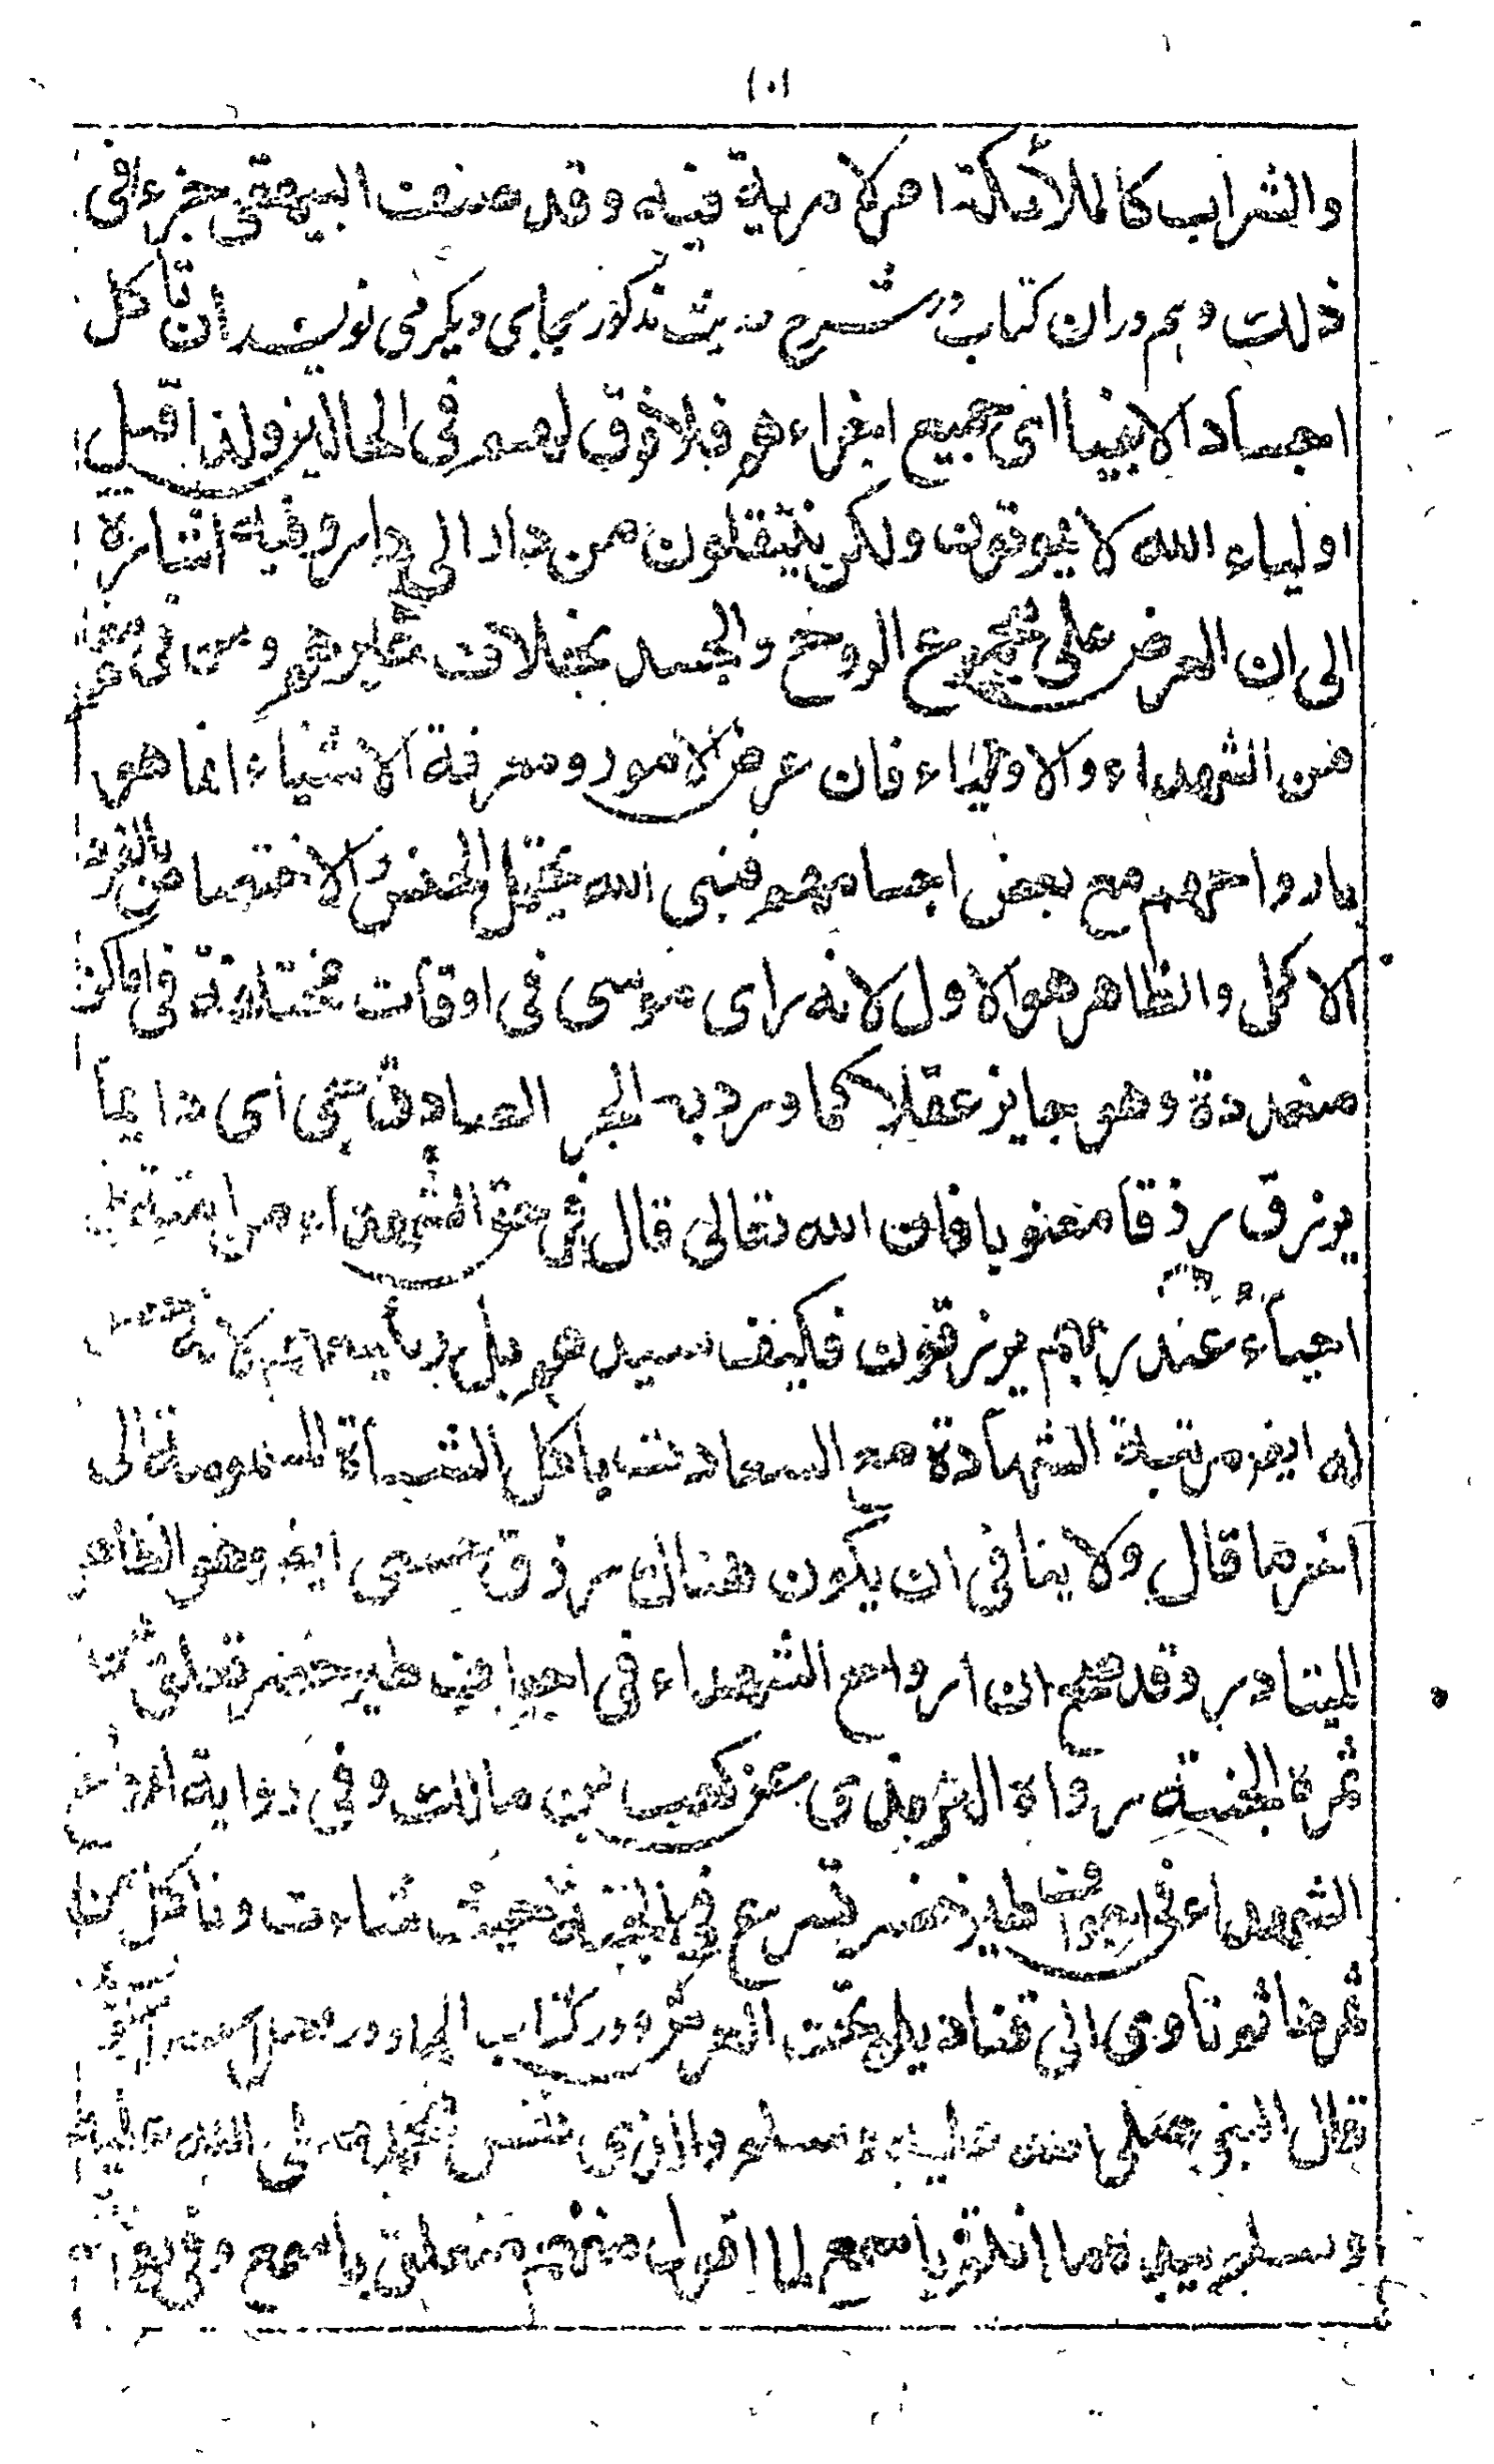 ١٠١
والشراب كالملائكة امر لا مرية فيه وقد صنف البيهقي جزءا في
ذلك وهم دران كتاب در شرح حديث مذكور بجاى ديكر مى نويسد ان تأكل
اجساد الانبيا اى جميع اجزاءهم فلا فرق لهم في الحالين ولذا قيل
اولياء الله لا يموتون ولكن ينتقلون من دار الى دار وفيه اشارة
الى ان العرض على مجموع الروح والجسد بخلاف غيرهم ومن في معناهم
من الشهداء والاولياء فان عرض الامور ومعرفة الاشياء انما هو
بارواحهم مع بعض اجسامهم فنبى الله يحتمل الجنس والاختصاص بالفرد
الاكمل والظاهر هو الاول لانه راى موسى في اوقات مختلفة في اماكن
متعددة وهو جايز عقلا كما ورد به الخبر الصادق حى اى دايما
يرزق رزقا معنويا فان الله تعالى قال في حق الشهداء من امته بل
احياء عند ربهم يرزقون فكيف سيدهم بل رئيسهم لانه حصل
له ايضا مرتبة الشهادة مع السعادت باكل الشاة المسمومة الى
اخر ما قال ولا ينافى ان يكون هناك رزق حسى ايضا وهو الظاهر
المتبادر وقد صح ان ارواح الشهداء في اجواف طير خضر تعلق من
ثمرة الجنة رواه الترمذى عن كعب بن مالك وفي رواية ارواح
الشهداء في اجواف طير خضر تسرح في الجنة حيث شاءت وتاكل من
ثمرها ثم تأوى الى قناديل تحت العرش ودر كتاب الجهاد در فصل
قال النبى صلى الله عليه وسلم والذى نفس محمد صلى الله عليه
وسلم بيده ما انتم باسمع لما اقول منهم متعلق باسمع وفي رواية